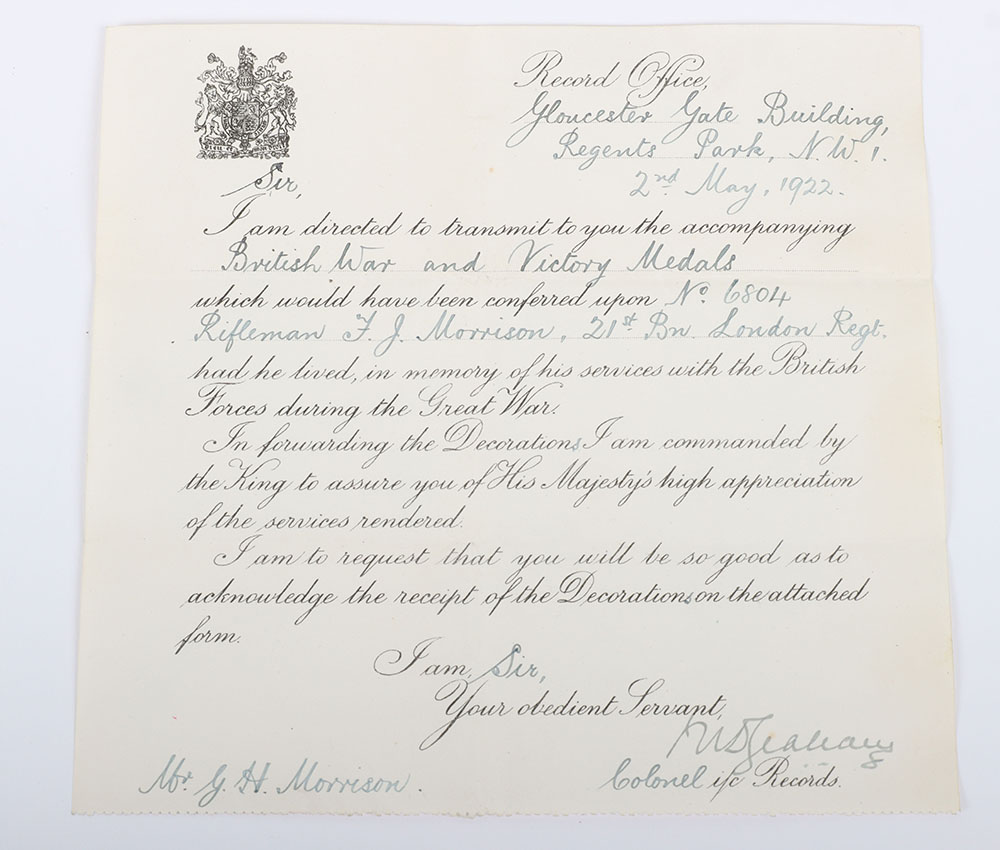 Record Office,
Gloucester Gate Building,
Regents Park, N.W.1.
2nd May, 1922.
Sir,
I am directed to transmit to you the accompanying
British War and Victory Medals
which would have been conferred upon No. 6804
Rifleman F. J. Morrison, 21st Bn. London Regt.
had he lived, in memory of his services with the British
Forces during the Great War.
In forwarding the Decorations I am commanded by
the King to assure you of His Majesty's high appreciation
of the services rendered.
I am to request that you will be so good as to
acknowledge the receipt of the Decorations on the attached
form.
I am, Sir,
Your obedient Servant,
Colonel i/c Records.
Mr. G. H. Morrison.